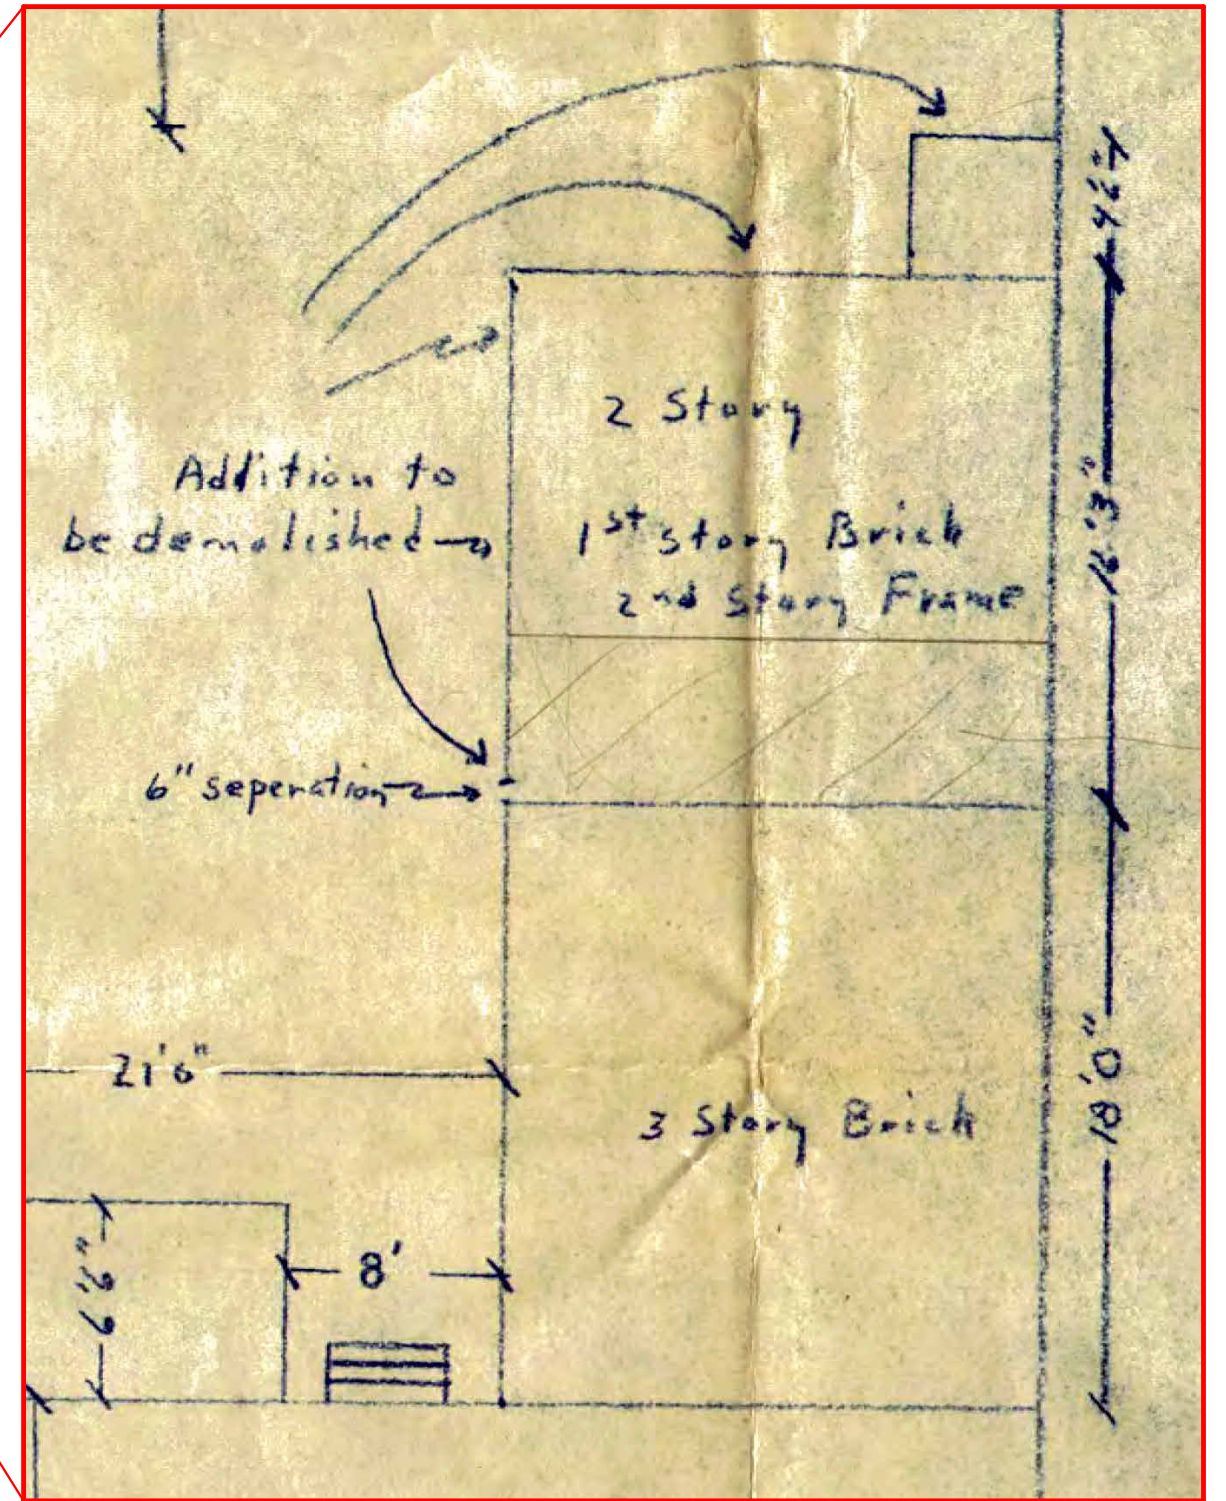 4'6"
2 Story
Addition to
be demolished
1st story Brick
2nd Story Frame
16'3"
6" seperation
21'6"
18'0"
3 Story Brick
8'